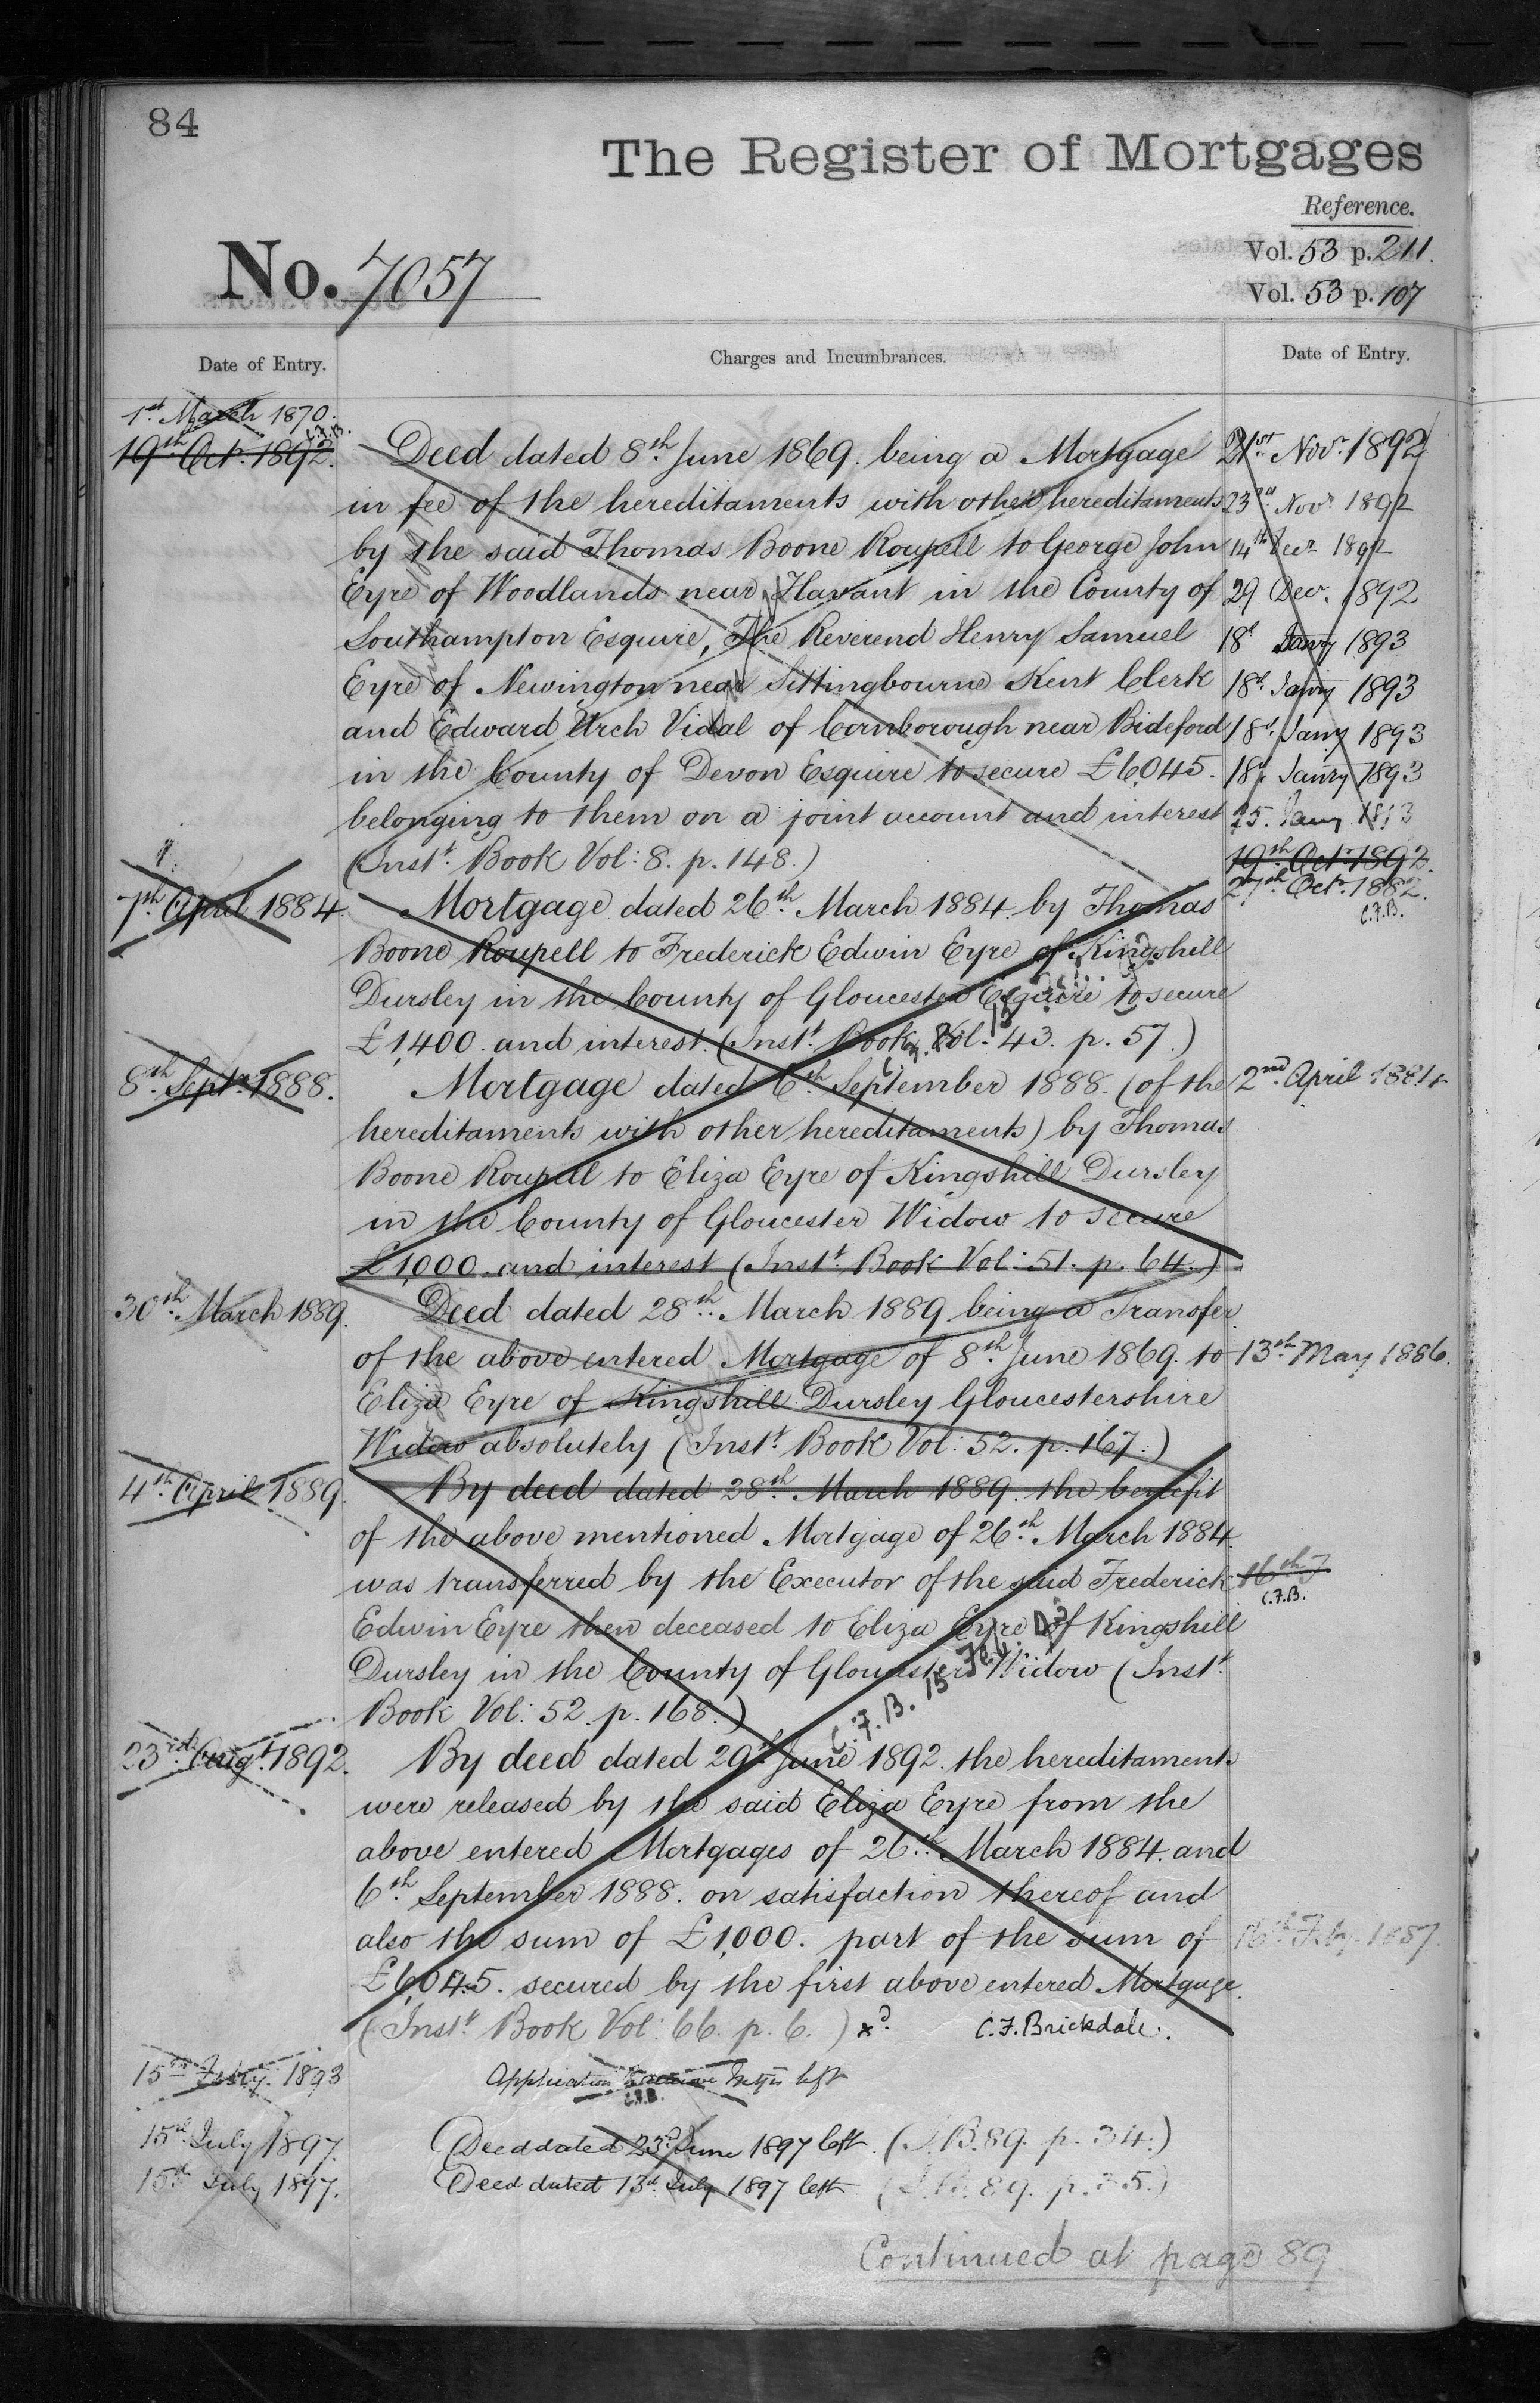 84
The Register of Mortgages
Reference.
Vol. 53 p. 211.
No. 7057
Vol. 53 p. 107
Date of Entry.
Charges and Incumbrances.
Date of Entry.
1st March 1870.
C.F.B.
19th Oct. 1892.
Deed dated 8th June 1869. being a Mortgage
in fee of the hereditaments with other hereditaments
by the said Thomas Boone Roupell to George John
Eyre of Woodlands near Havant in the County of
Southampton Esquire, The Reverend Henry Samuel
Eyre of Newington near Sittingbourne Kent Clerk
and Edward Urch Vidal of Cornborough near Bideford
in the County of Devon Esquire to secure £6,045.
belonging to them on a joint account and interest
(Inst. Book Vol: 8. p. 148.)
21st Novr. 1892
23rd Novr 1892
14th Decr 1892
29 Dec. 1892
18th Jany 1893
18th Jany 1893
18th Jany 1893
18th Jany 1893
25. Jany 1893
19th Oct. 1892.
27th Oct. 1882.
C.F.B.
7th April 1884.
Mortgage dated 26th March 1884 by Thomas
Boone Roupell to Frederick Edwin Eyre of Kingshill
Dursley in the County of Gloucester Esquire to secure
£1,400. and interest. (Inst. Book Vol. 43. p. 57.)
8th Septr 1888.
Mortgage dated 6th September 1888. (of the
hereditaments with other hereditaments) by Thomas
Boone Roupell to Eliza Eyre of Kingshill Dursley
in the County of Gloucester Widow to secure
£1,000. and interest (Inst. Book Vol: 51. p. 64.)
2nd April 1884
30th March 1889.
Deed dated 28th March 1889 being a Transfer
of the above entered Mortgage of 8th June 1869. to
Eliza Eyre of Kingshill Dursley Gloucestershire
Widow absolutely (Inst. Book Vol: 52. p. 167.)
13th May 1886.
4th April 1889.
By deed dated 28th March 1889. the benefit
of the above mentioned Mortgage of 26th March 1884
was transferred by the Executor of the said Frederick
Edwin Eyre then deceased to Eliza Eyre of Kingshill
Dursley in the County of Gloucester Widow (Inst.
Book Vol: 52. p. 168.)
16th F
C.F.B.
C.F.B. 15 Feb. 93
23rd Augt. 1892.
By deed dated 29th June 1892. the hereditaments
were released by the said Eliza Eyre from the
above entered Mortgages of 26th March 1884. and
6th September 1888. on satisfaction thereof and
also the sum of £1,000. part of the sum of
£6,045. secured by the first above entered Mortgage.
(Inst. Book Vol: 66. p. 6.) xd. C.F. Brickdale.
16th Feby. 1887.
15th Feby. 1893
Application left
C.F.B.
15th July 1897.
Deed dated 23rd June 1897 left (I.B. 89. p. 34.)
15th July 1897.
Deed dated 13th July 1897 left (I.B. 89. p. 35.)
Continued at page 89